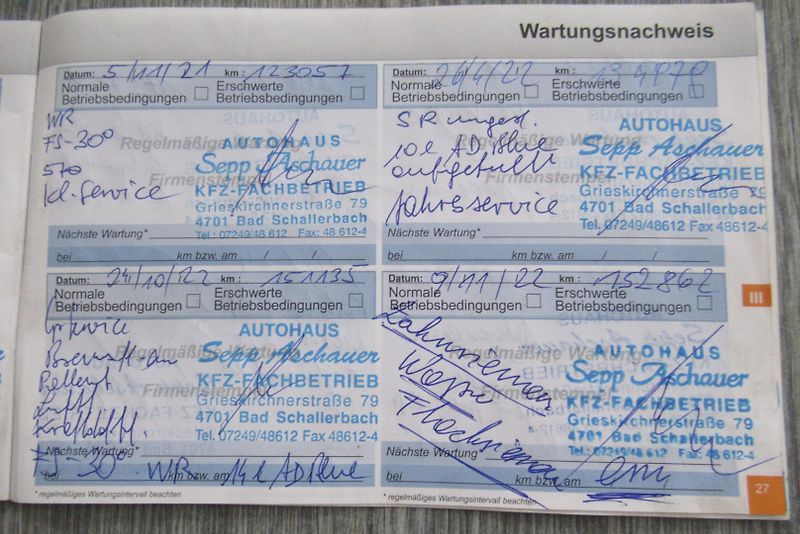 Wartungsnachweis
Datum: 5/11/21 km: 123057
Normale Betriebsbedingungen
Erschwerte Betriebsbedingungen
WR
FS-30°
Kl. Service
Regelmäßige Wartung
Firmenstempel
AUTOHAUS
Sepp Aschauer
KFZ-FACHBETRIEB
Grieskirchnerstraße 79
4701 Bad Schallerbach
Tel.: 07249/48 612 Fax: 48 612-4
Nächste Wartung*
bei km bzw. am / /
Datum: /4/22 km:
Normale Betriebsbedingungen
Erschwerte Betriebsbedingungen
SR
10l AD Blue
aufgefüllt
Jahresservice
AUTOHAUS
Sepp Aschauer
KFZ-FACHBETRIEB
Grieskirchnerstraße 79
4701 Bad Schallerbach
Tel. 07249/48612 Fax 48 612-4
Nächste Wartung*
bei km bzw. am / /
Datum: 24/10/22 km: 151135
Normale Betriebsbedingungen
Erschwerte Betriebsbedingungen
Regelmäßige Wartung
AUTOHAUS
Sepp Aschauer
KFZ-FACHBETRIEB
Grieskirchnerstraße 79
4701 Bad Schallerbach
Tel.: 07249/48 612 Fax: 48 612-4
Nächste Wartung*
FS-30° WR 14l AD Blue
bei km bzw. am
* regelmäßiges Wartungsintervall beachten
Datum: 9/11/22 km: 152862
Normale Betriebsbedingungen
Erschwerte Betriebsbedingungen
Zahnriemen
Regelmäßige Wartung
Flachriemen
AUTOHAUS
Sepp Aschauer
KFZ-FACHBETRIEB
Grieskirchnerstraße 79
4701 Bad Schallerbach
Tel.: 07249/48 612 Fax: 48 612-4
Nächste Wartung*
bei km bzw. am
* regelmäßiges Wartungsintervall beachten
III
27